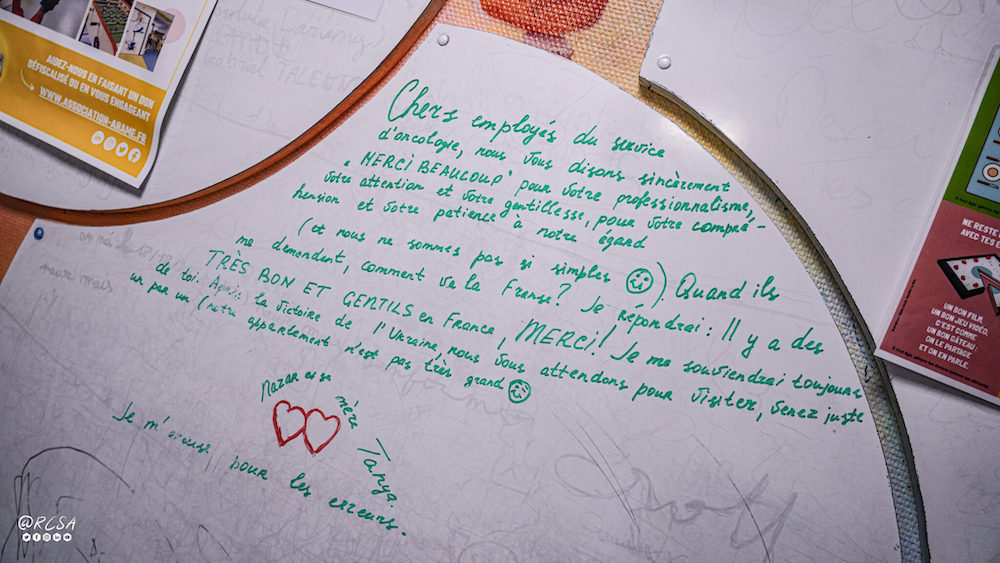 AIDEZ-NOUS EN FAISANT UN DON
DÉFISCALISÉ OU EN VOUS ENGAGEANT
WWW.ASSOCIATION-ARAME.FR
Chers employés du service
d'oncologie, nous vous disons sincèrement
"MERCI BEAUCOUP" pour votre professionnalisme,
votre attention et votre gentillesse, pour votre compré-
hension et votre patience à notre égard
(et nous ne sommes pas si simples ☺). Quand ils
me demandent, comment va la Franse? Je répondrai: Il y a des
TRÈS BON ET GENTILS en France, MERCI! Je me souviendrai toujours
de toi. Après la victoire de l'Ukraine, nous vous attendons pour visiter, venez juste
un par un (notre appartement n'est pas très grand ☺
Nazar et sa mère Tanya.
Je m'excuse pour les erreurs.
NE RESTE
AVEC TES E
UN BON FILM,
UN BON JEU VIDÉO,
C'EST COMME
UN BON GÂTEAU :
ON LE PARTAGE
ET ON EN PARLE.
@RCSA